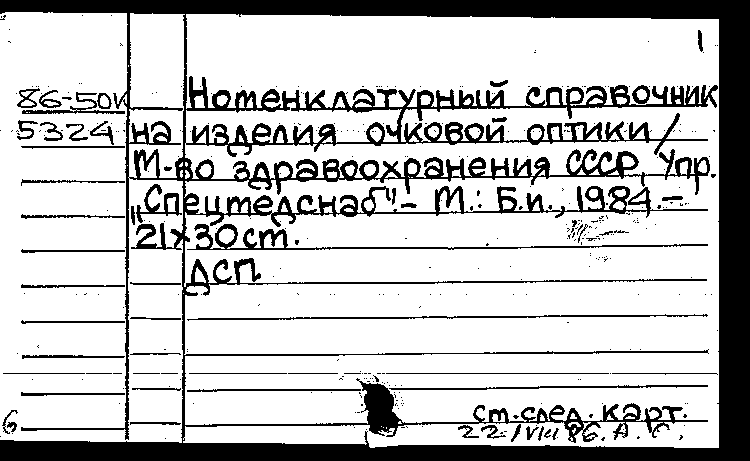 1
86-50к Номенклатурный справочник
5324 на изделия очковой оптики /
М-во здравоохранения СССР, Упр.
„Спецмедснаб". - М.: Б.и., 1984. -
21х30см.
ДСП
см. след. карт.
22/VIII 86. А. С.
6